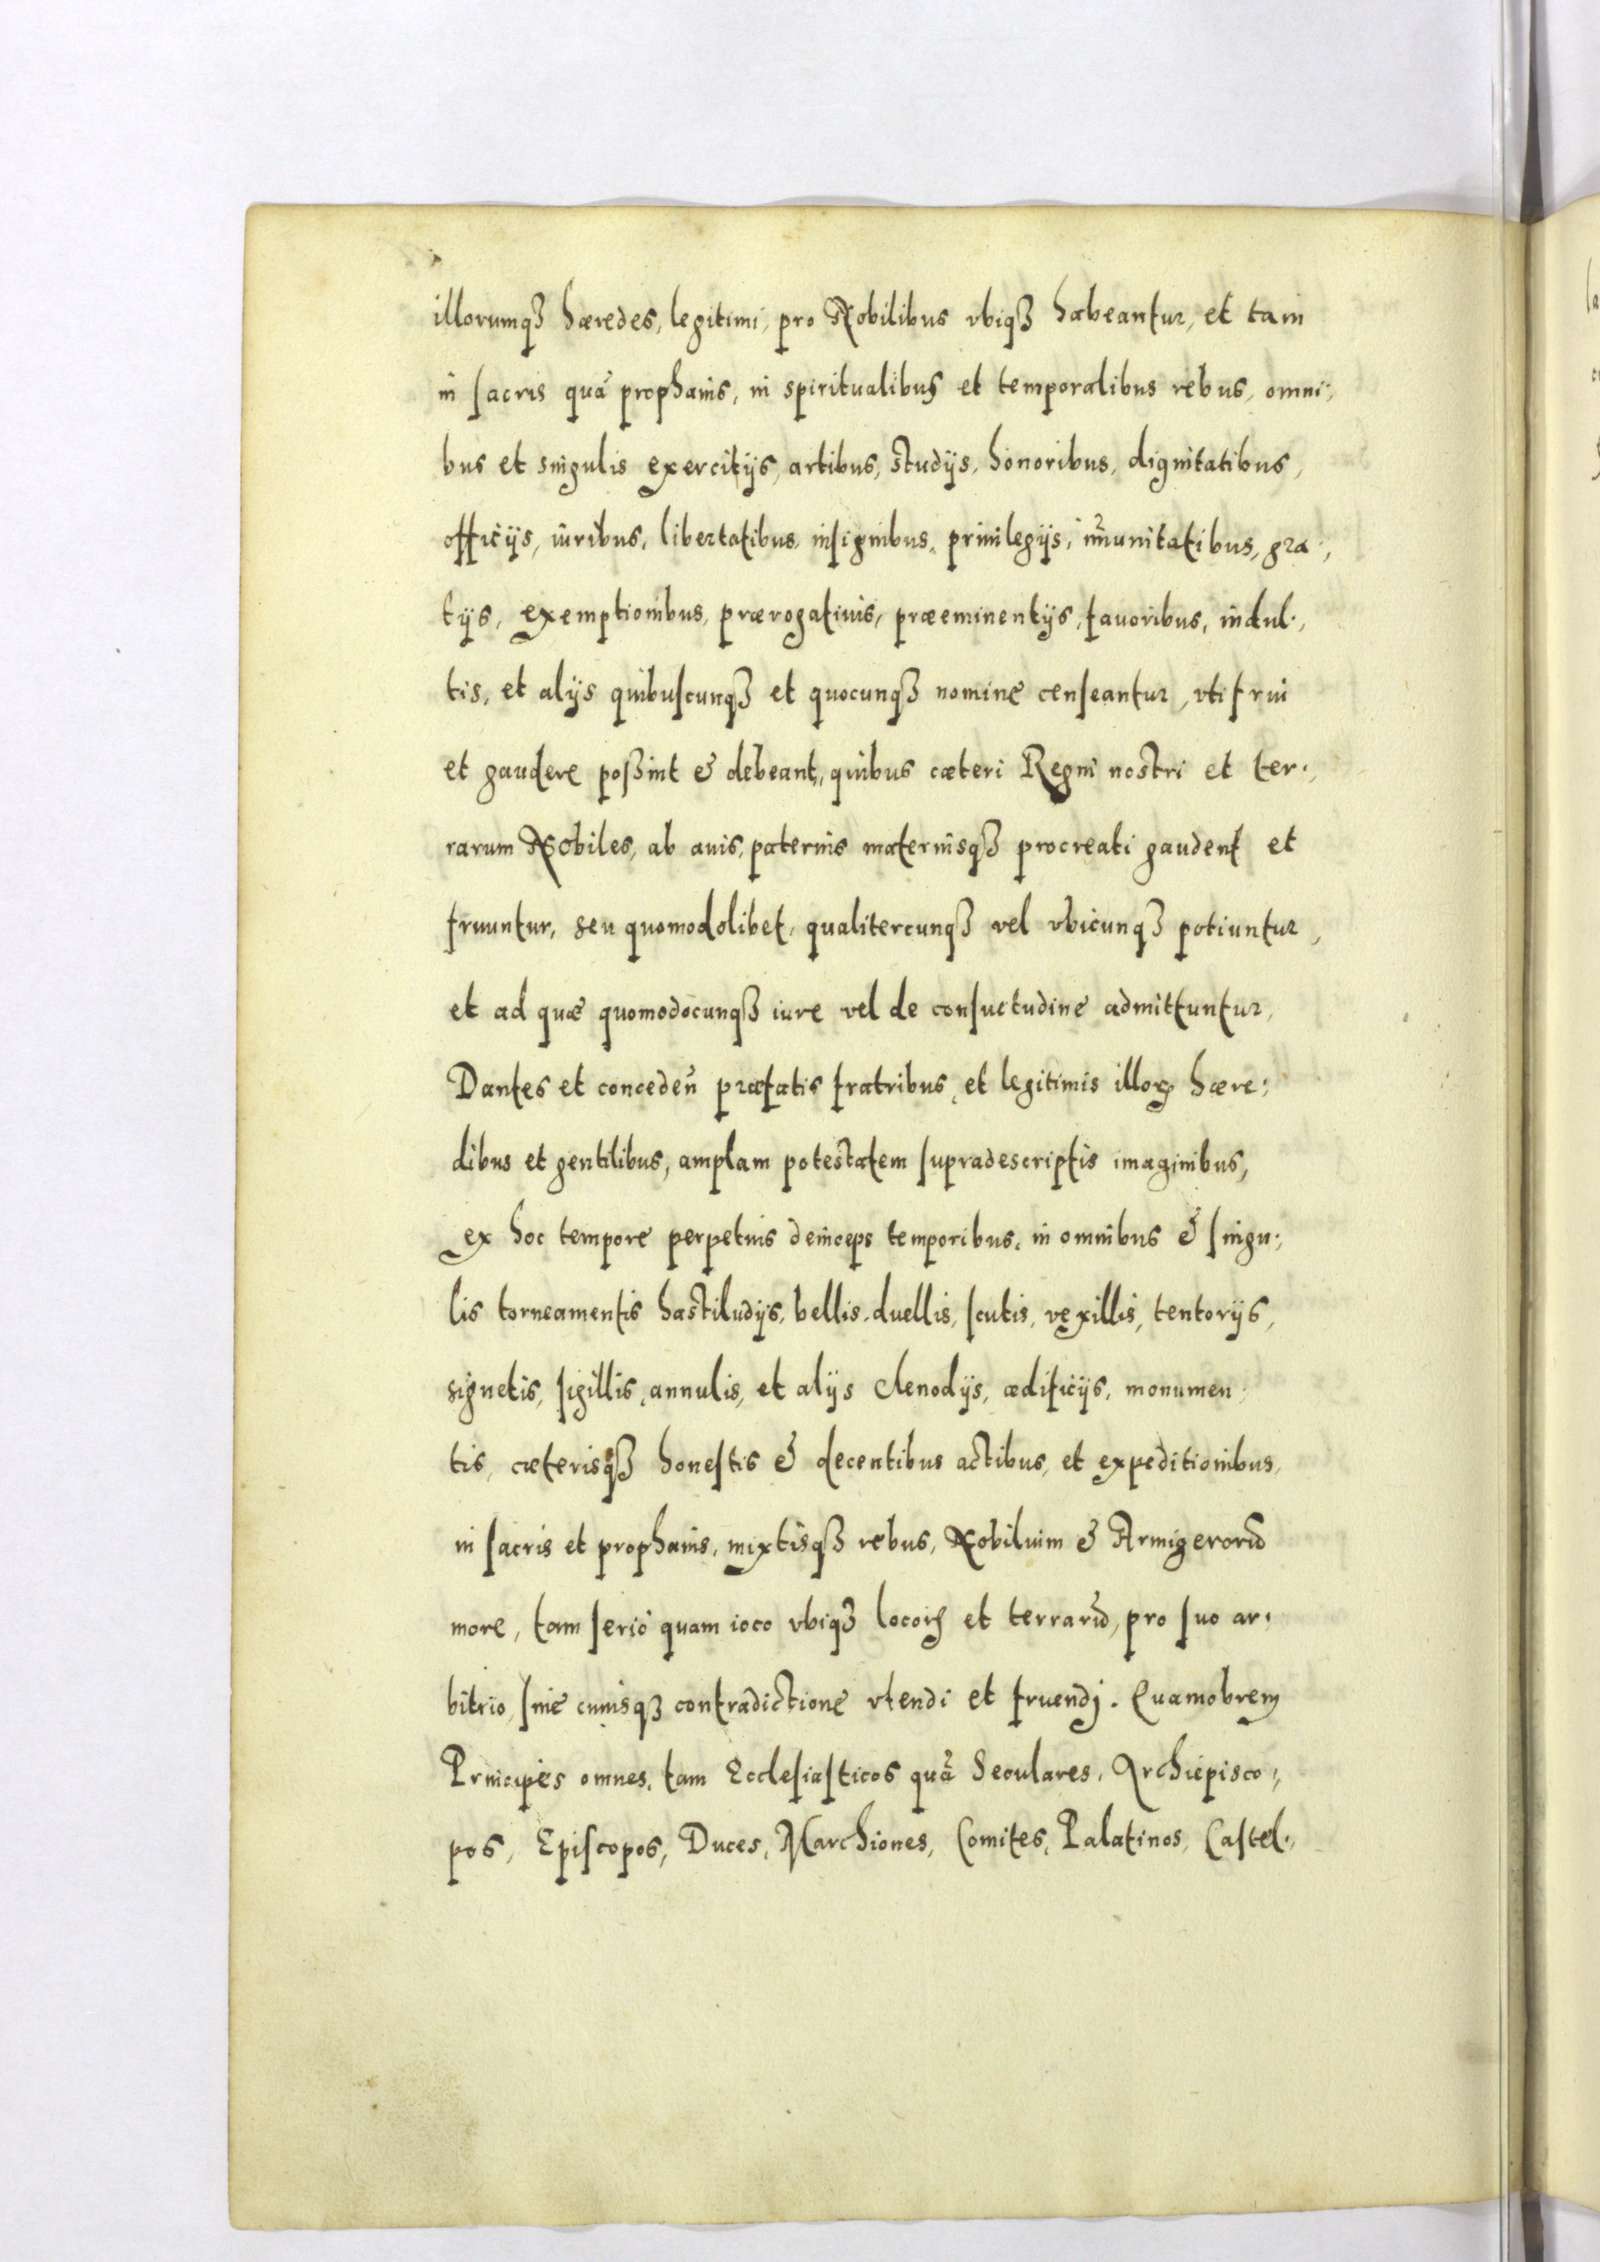 illorumqȝ hæredes, legitimi, pro Nobilibus vbiqȝ habeantur, et tam
in sacris quã prophanis, in spiritualibus et temporalibus rebus, omni:
bus et singulis exercitijs, artibus, studijs, honoribus, dignitatibus,
officijs, iuribus, libertatibus, insignibus, priuilegijs, im̃unitatibus, gra:
tijs, exemptionibus, prærogatiuis, præeminentijs, fauoribus, indul:
tis, et alijs quibuscunqȝ et quocunqȝ nomine censeantur, vti frui
et gaudere possint & debeant, quibus cæteri Regni nostri et ter:
rarum Nobiles, ab auis, paternis maternisqȝ procreati gaudent et
fruuntur, seu quomodolibet, qualitercunqȝ vel vbicunqȝ potiuntur,
et ad quæ quomodocunqȝ iure vel de consuetudine admittuntur,
Dantes et conceden̄ præfatis fratribus, et legitimis illoꝝ hære:
dibus et gentilibus, amplam potestatem supradescriptis imaginibus,
ex hoc tempore perpetuis deinceps temporibus, in omnibus & singu:
lis torneamentis hastiludijs, bellis, duellis, scutis, vexillis, tentorijs,
signetis, sigillis, annulis, et alijs clenodijs, ædificijs, monumen:
tis, cæterisqȝ honestis & decentibus actibus, et expeditionibus,
in sacris et prophanis, mixtisqȝ rebus, Nobilium & Armigerorū
more, tam serio quam ioco vbiqȝ locoꝝ et terrarū, pro suo ar:
bitrio, sine cuiusqȝ contradictione vtendi et fruendj. Quamobrem
Principes omnes, tam Ecclesiasticos quã Seculares, Archiepisco:
pos, Episcopos, Duces, Marchiones, Comites, Palatinos, Castel: